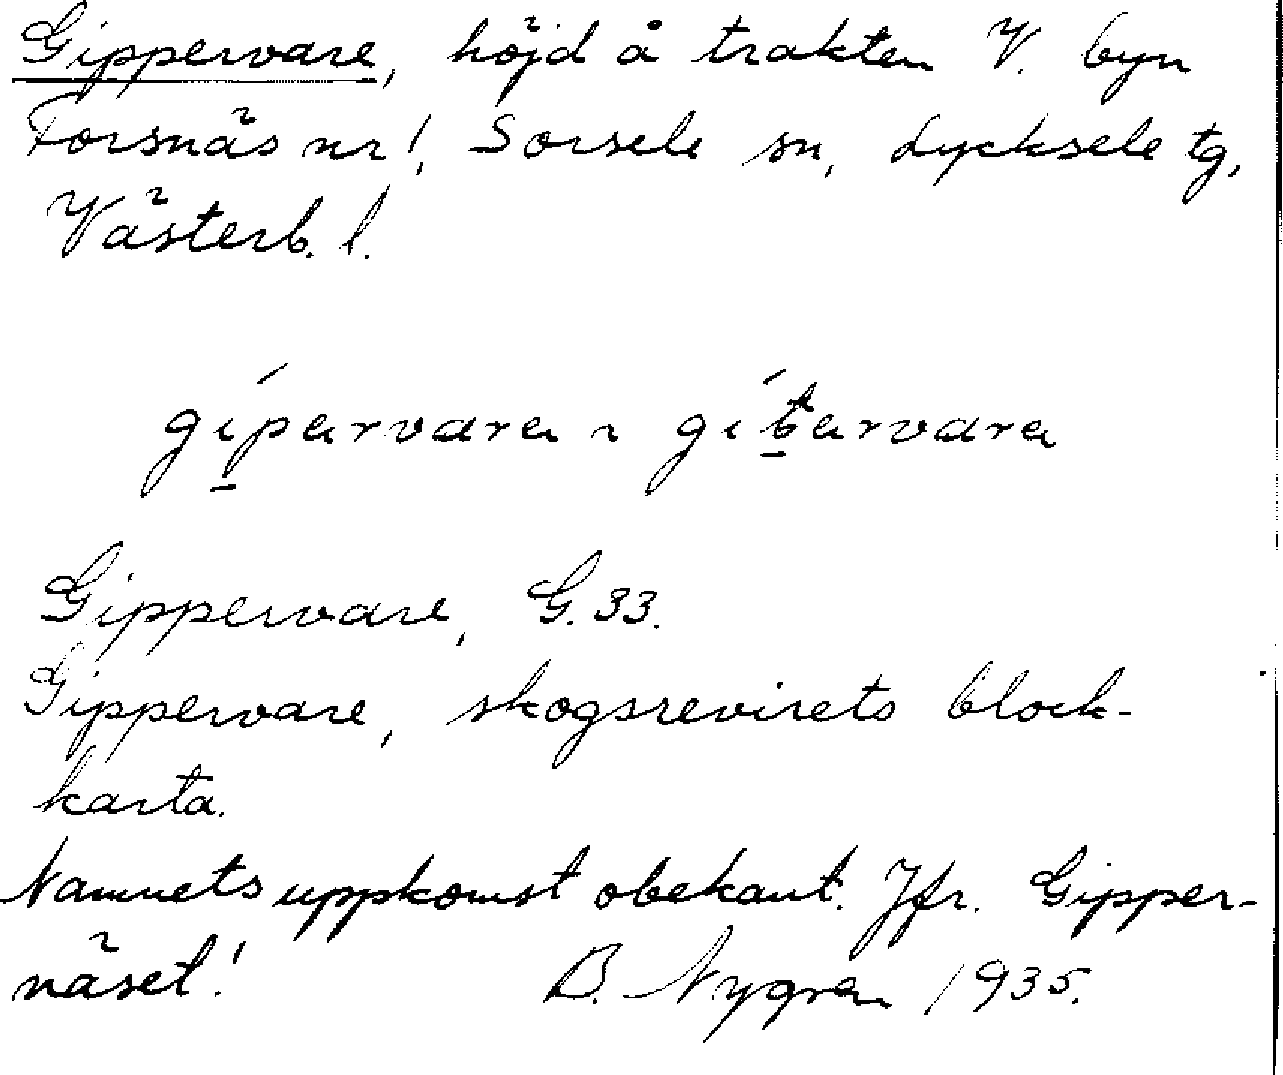 Gippervare, höjd å trakten V. byn
Forsnäs nr 1, Sorsele sn, Lycksele tg,
Västerb. l.
gípərvarə ~ gítərvarə
Gippervare, G. 33.
Gippervare, skogsrevirets block-
karta.
Namnets uppkomst obekant. Jfr. Gipper-
näset!
B. Nygren 1935.